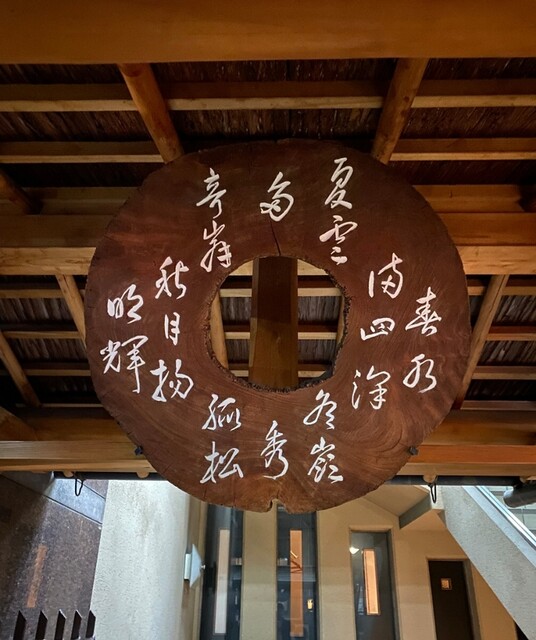 春水
満四澤
夏雲
多
奇峯
秋月揚
明輝
冬嶺
秀
孤松